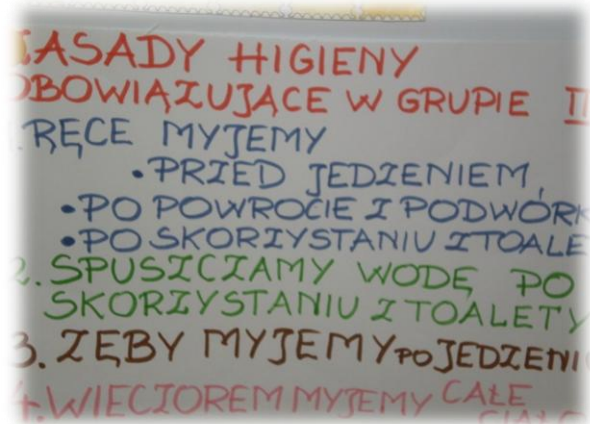 ZASADY HIGIENY
OBOWIĄZUJĄCE W GRUPIE II
1. RĘCE MYJEMY
• PRZED JEDZENIEM,
• PO POWROCIE Z PODWÓRK
• PO SKORZYSTANIU Z TOALE
2. SPUSZCZAMY WODĘ PO
SKORZYSTANIU Z TOALETY
3. ZĘBY MYJEMY PO JEDZENI
4. WIECZOREM MYJEMY CAŁE
CIAŁO